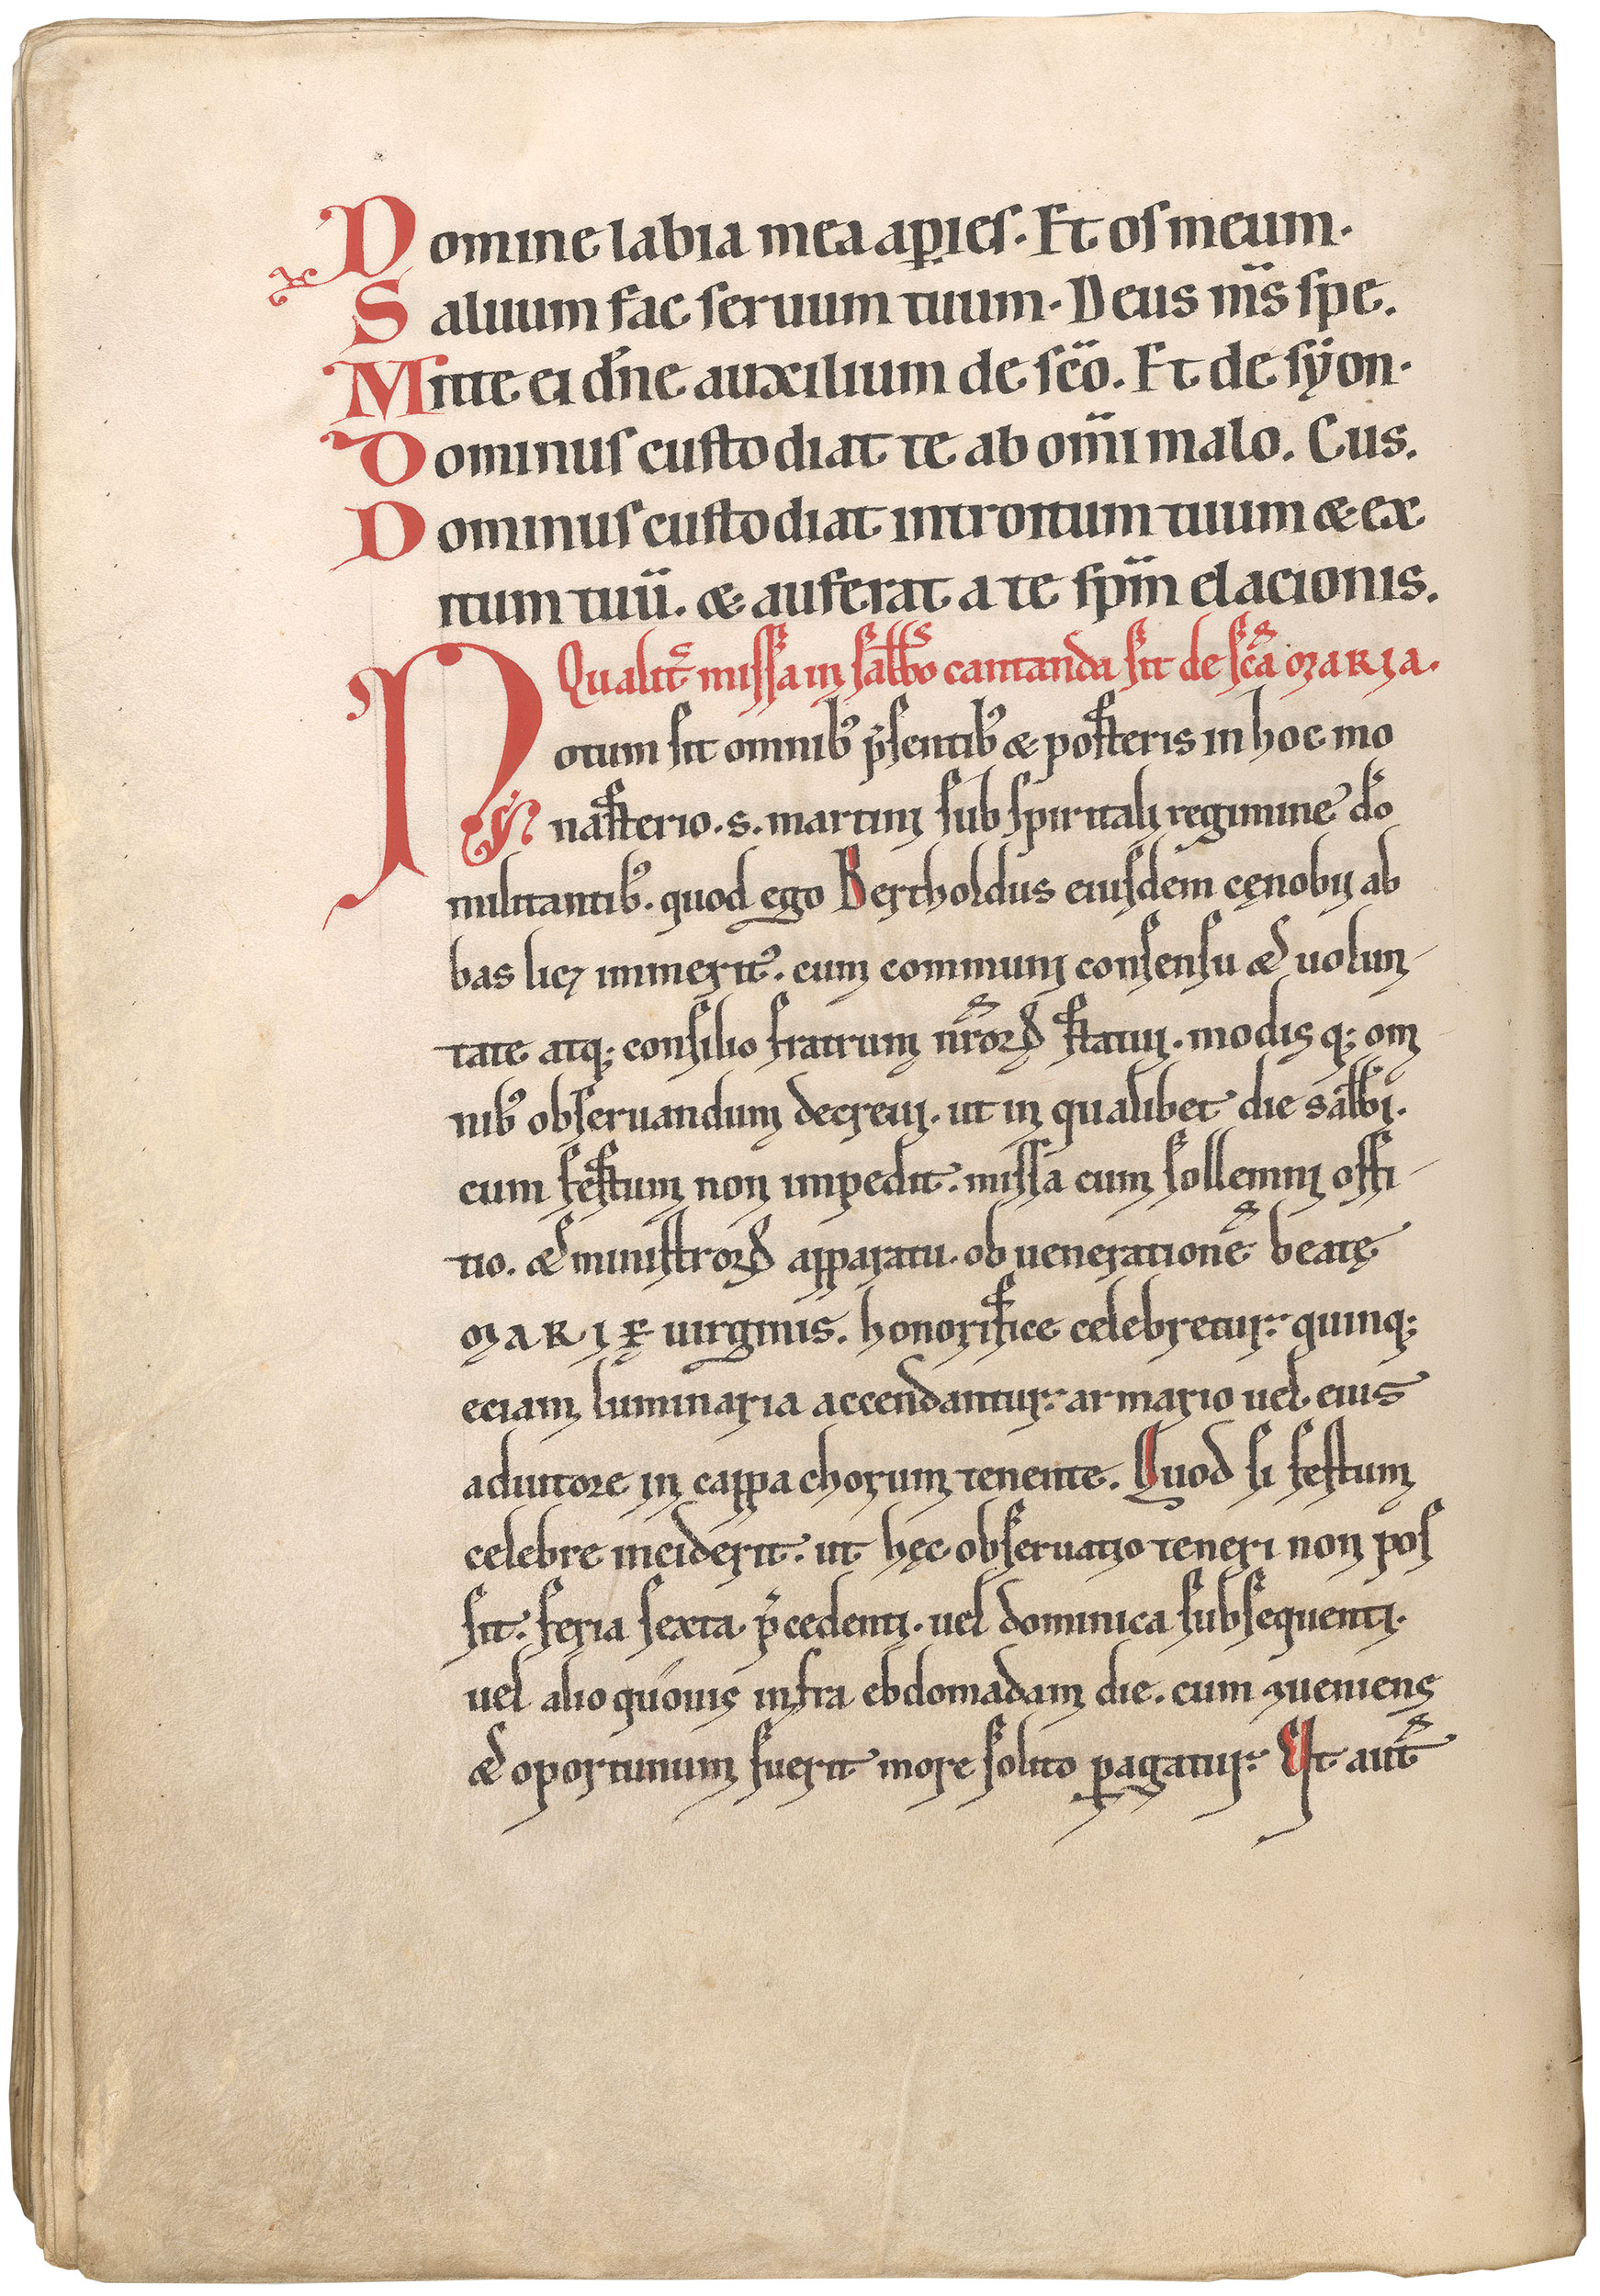 Domine labia mea ap̲ies. Et os meum.
Saluum fac seruum tuum. Deus m̅s spe.
Mitte ei d̅ne auxilium de sc̅o. Et de syon.
Dominus custodiat te ab om̅i malo. Cus.
Dominus custodiat introitum tuum & ex
itum tuu̅. & auferat a te sp̅m elacionis.
Qualit̅ missa in sabb̅o cantanda sit de sc̅a MARIA.
Notum sit omnibꝰ p̅sentibꝰ & posteris in hoc mo
nasterio. s. martini sub spiritali regimine d̅o
militantibꝰ. quod ego Bertholdus eiusdem cęnobii ab
bas licꝫ immeritꝰ. cum communi consensu & uolun
tate atqꝫ consilio fratrum nr̅oꝝ statui. modis qꝫ om
nibꝰ obseruandum decreui. ut in qualibet die sabb̅i.
cum festum non impedit. missa cum sollemni offi
tio. & ministroꝝ apparatu. ob ueneratione̅ beatę
MARIĘ uirginis. honorifice celebretur: quinqꝫ
eciam luminaria accendantur: armario uel eius
adiutore in cappa chorum tenente. Quod si festum
celebre inciderit. ut hęc obseruatio teneri non pos
sit. feria sexta p̅cedenti. uel dominica subsequenti.
uel alio quouis infra ebdomadam die. cum ꝯueniens
& oportunum fuerit more solito ꝑagatur: Ut aut̅